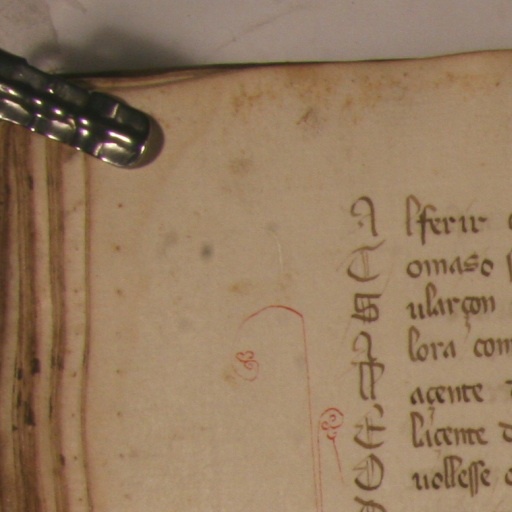 A lferir
T omaso
S ularçon
A lora com
P açente
E liçente d
O uollesse